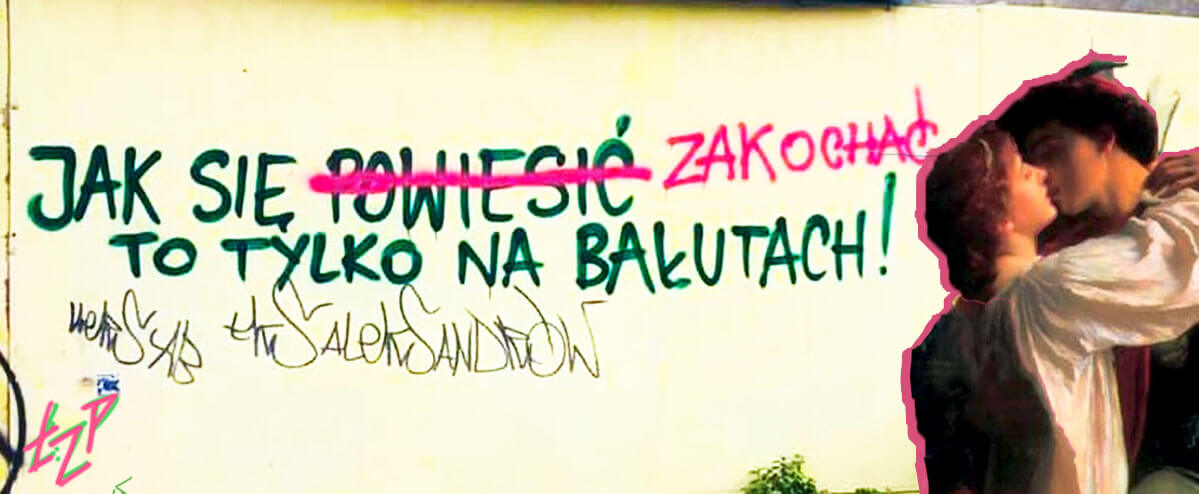 JAK SIĘ POWIESIĆ ZAKOCHAĆ
TO TYLKO NA BAŁUTACH!
ŁKS ALEKSANDRÓW
ŁZP